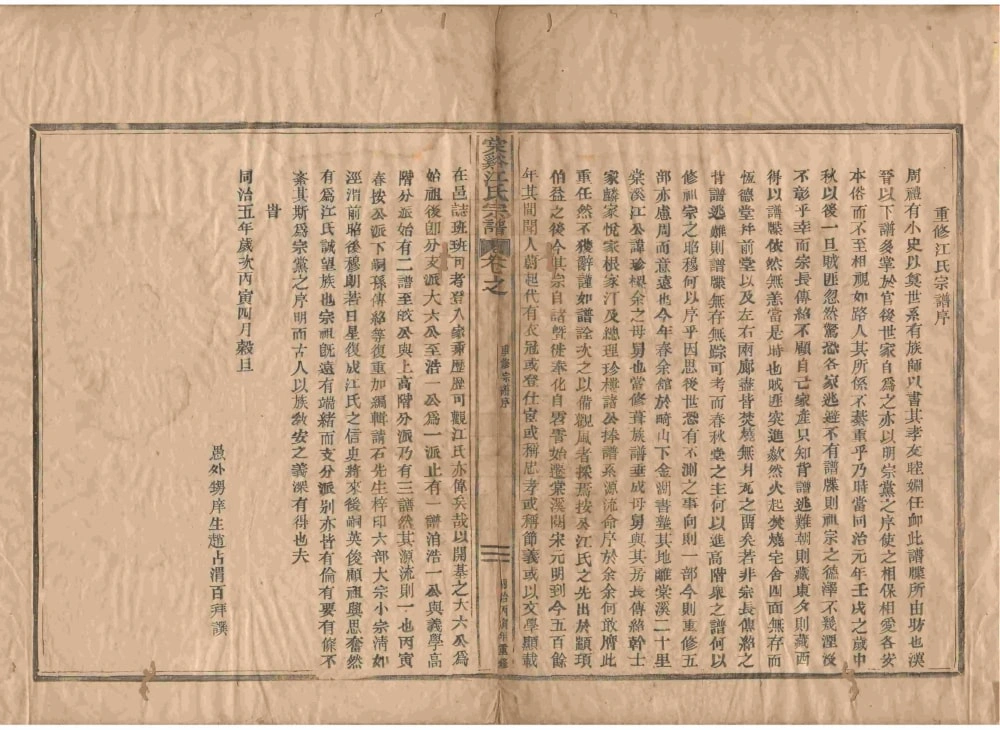 重修江氏宗譜序
周禮有小史以奠世系有族師以書其孝友睦婣任卹此譜牒所由昉也漢
晉以下譜多掌於官後世家自為之亦以明宗黨之序使之相保相愛各安
本俗而不至相視如路人其所係不綦重乎乃時當同治元年壬戌之歲中
秋以後一旦賊匪忽然驚恐各家逃避不有譜牒則祖宗之德澤不幾湮沒
不彰乎幸而宗長傳絡不顧自己家產只知背譜逃難朝則藏東夕則藏西
得以譜牒依然無恙當是時也賊匪突進歘然火起焚燒宅舍四面無存而
恆德堂并前堂以及左右兩廊盡皆焚燒無片瓦之畱矣若非宗長傳絡之
背譜逃難則譜牒無存無踪可考而春秋堂之主何以進高階衆之譜何以
修祖宗之昭穆何以序乎因思後世恐有不測之事向則一部今則重修五
部亦慮周而意遠也今年春余舘於崎山下金湖書塾其地離棠溪二十里
棠溪江公諱珍樑余之母舅也當修葺族譜垂成母舅與其房長傳絡幹士
家麟家悅家根家汀及總理珍樓諸公捧譜系源流命序於余余何敢膺此
重任然不獲辭謹如譜詮次之以備觀風者採焉按江氏之先出於顓頊
伯益之後今其宗自諸暨徙奉化自雲霄始遷棠溪閱宋元明到今五百餘
年其間聞人蔚起代有衣冠或登仕宦或稱忠孝或稱節義或以文學顯載
棠谿江氏宗譜
卷之
重修宗譜序
在邑誌班班可考登入家乘歷歷可觀江氏亦偉矣哉以開基之大六公為
始祖後卽分支派大六公至浩一公為一派止有一譜洎浩一公與義學高
階分派始有二譜至皎公與上高階分派乃有三譜然其源流則一也丙寅
春按公派下嗣孫傳絡等復重加編輯請石先生梓印六部大宗小宗淸如
涇渭前昭後穆朗若日星復成江氏之信史將來後嗣英俊顧祖興思奮然
有為江氏誠望族也宗祖旣遠有端緒而支分派別亦皆有倫有要有條不
紊其斯為宗黨之序明而古人以族敎安之義深有得也夫
旹
同治五年歲次丙寅四月穀旦
愚外甥庠生趙占渭百拜譔